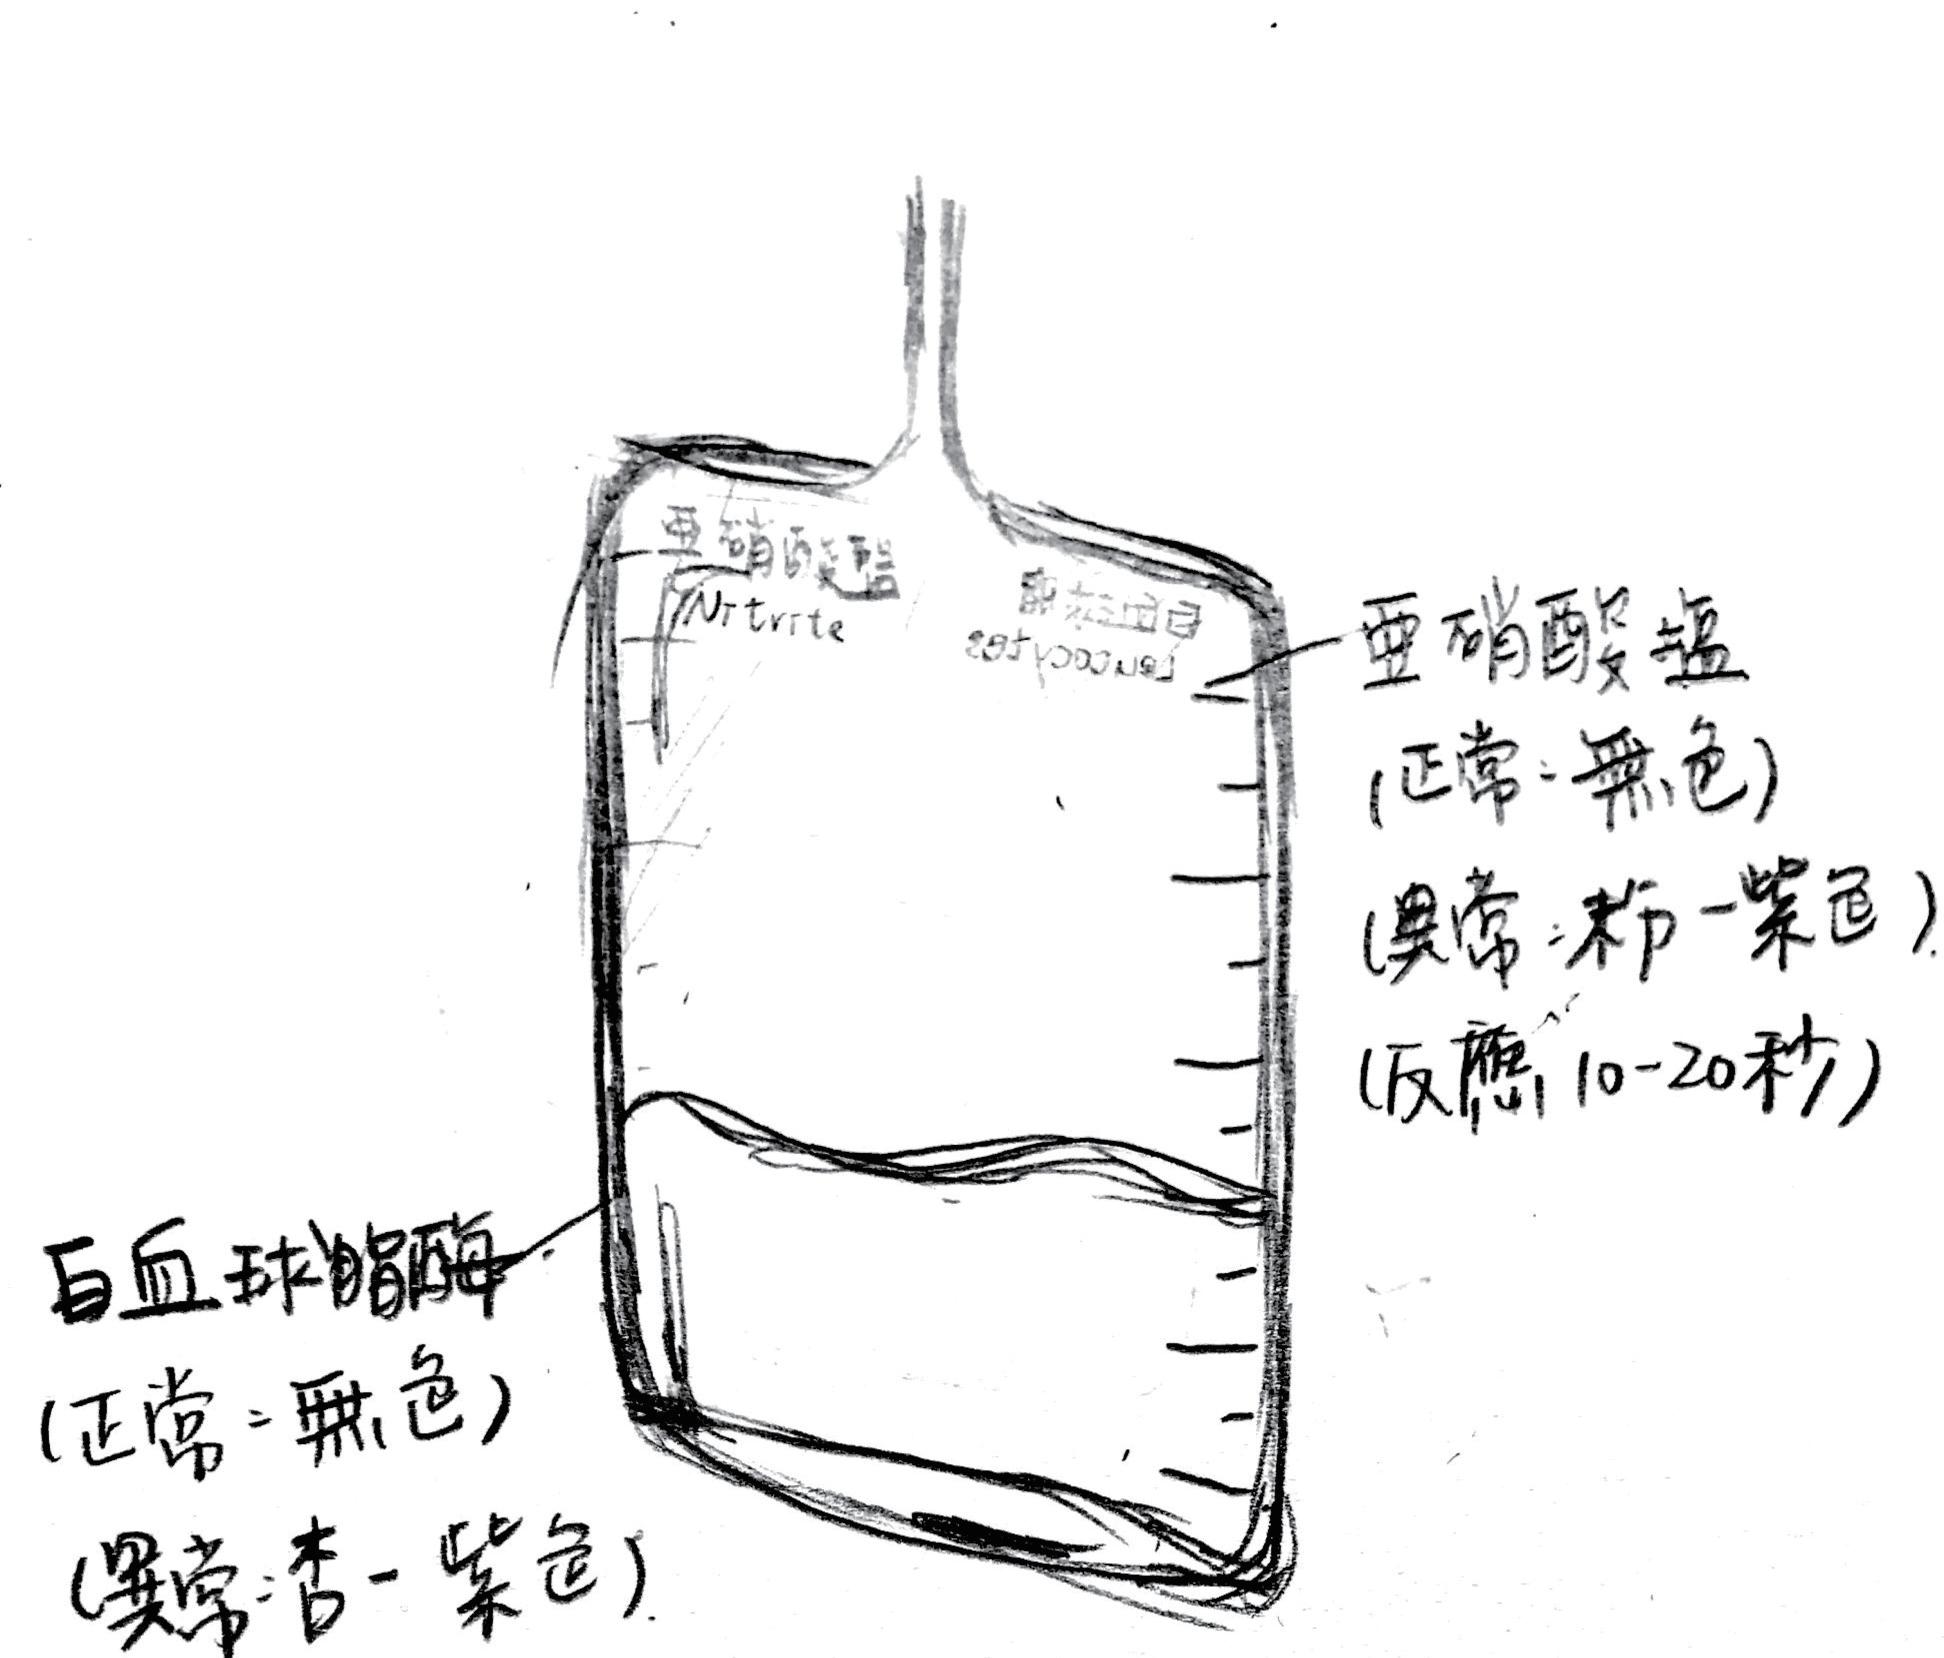 亜硝酸塩
Nitrite
白血球
Leucocytes
亜硝酸塩
(正常:無色)
(異常:粉-紫色)
(反應10-20秒)
白血球脂酶
(正常:無色)
(異常:杏-紫色)